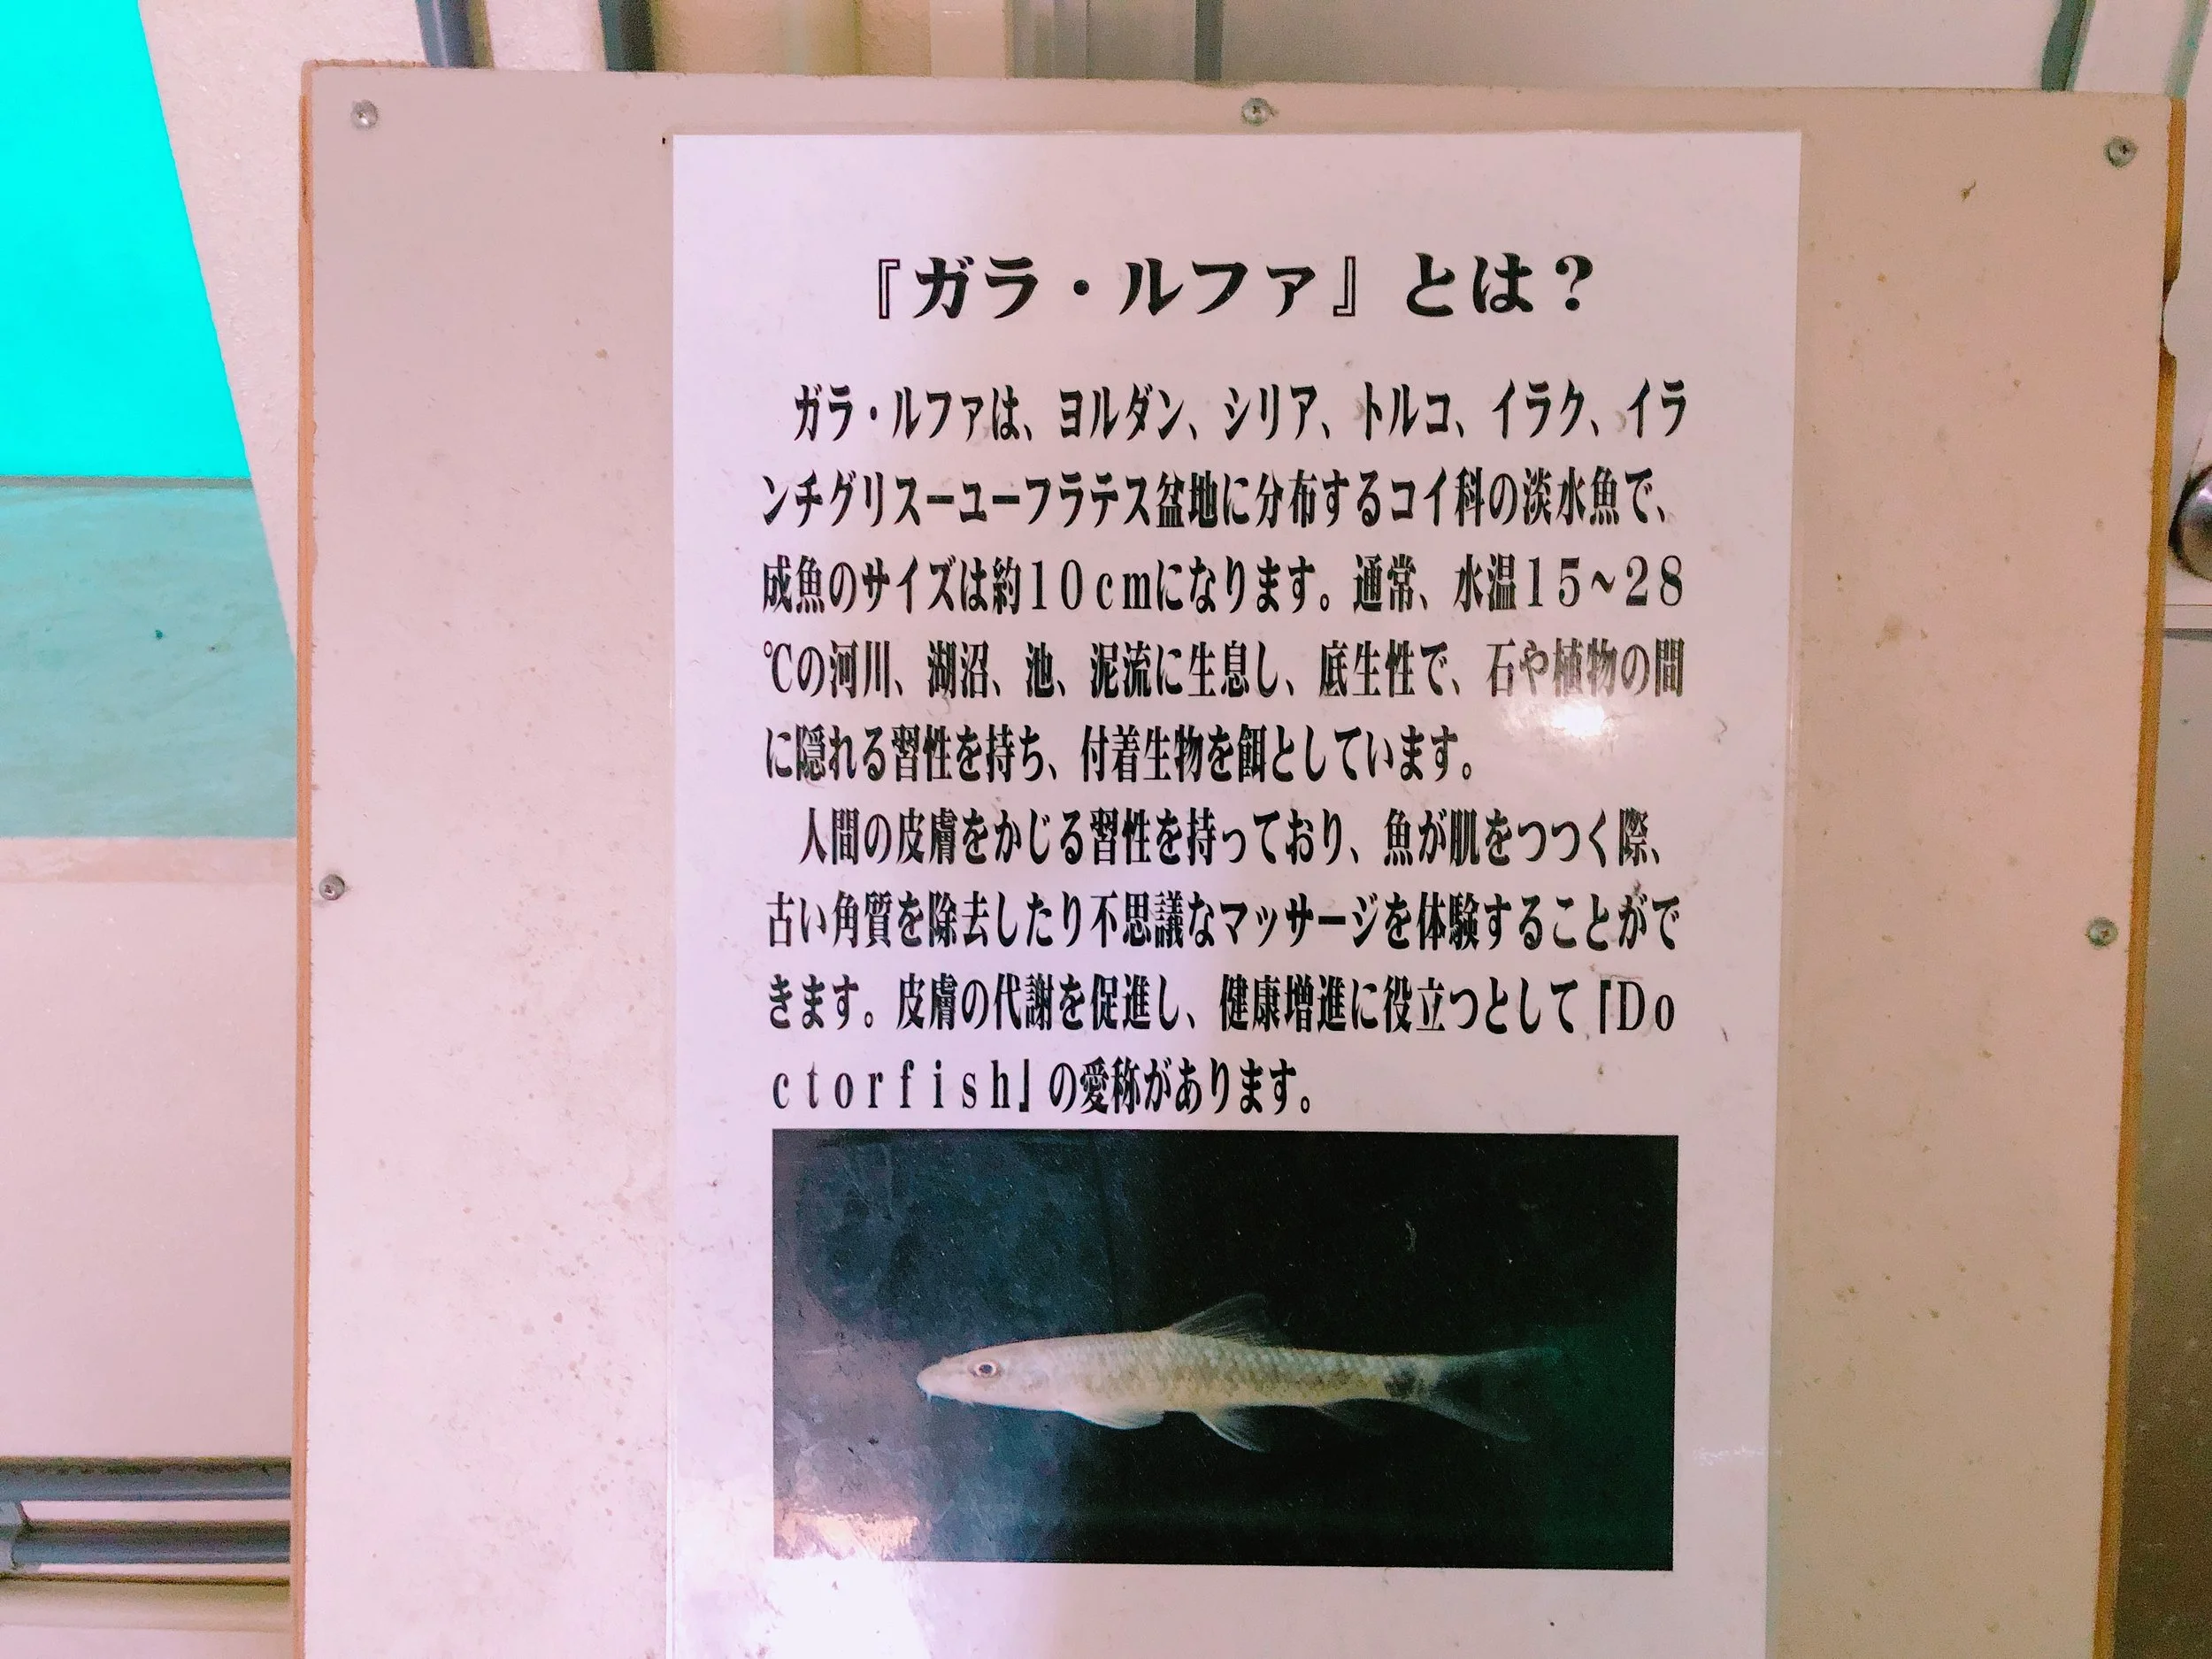 『ガラ・ルファ』とは？
ガラ・ルファは、ヨルダン、シリア、トルコ、イラク、イラ
ンチグリスーユーフラテス盆地に分布するコイ科の淡水魚で、
成魚のサイズは約１０ｃｍになります。通常、水温１５～２８
℃の河川、湖沼、池、泥流に生息し、底生性で、石や植物の間
に隠れる習性を持ち、付着生物を餌としています。
人間の皮膚をかじる習性を持っており、魚が肌をつつく際、
古い角質を除去したり不思議なマッサージを体験することがで
きます。皮膚の代謝を促進し、健康増進に役立つとして「Ｄｏ
ｃｔｏｒｆｉｓｈ」の愛称があります。